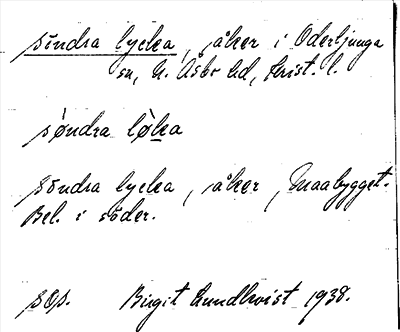 söndra lycka, åker i Oderljunga
sn, N. Åsbo hd, Krist. l.
sø̀ndra lø̀ka
Söndra lycka, åker, Maabygget.
Bel. i söder.
sgs. Birgit Lundkvist 1938.